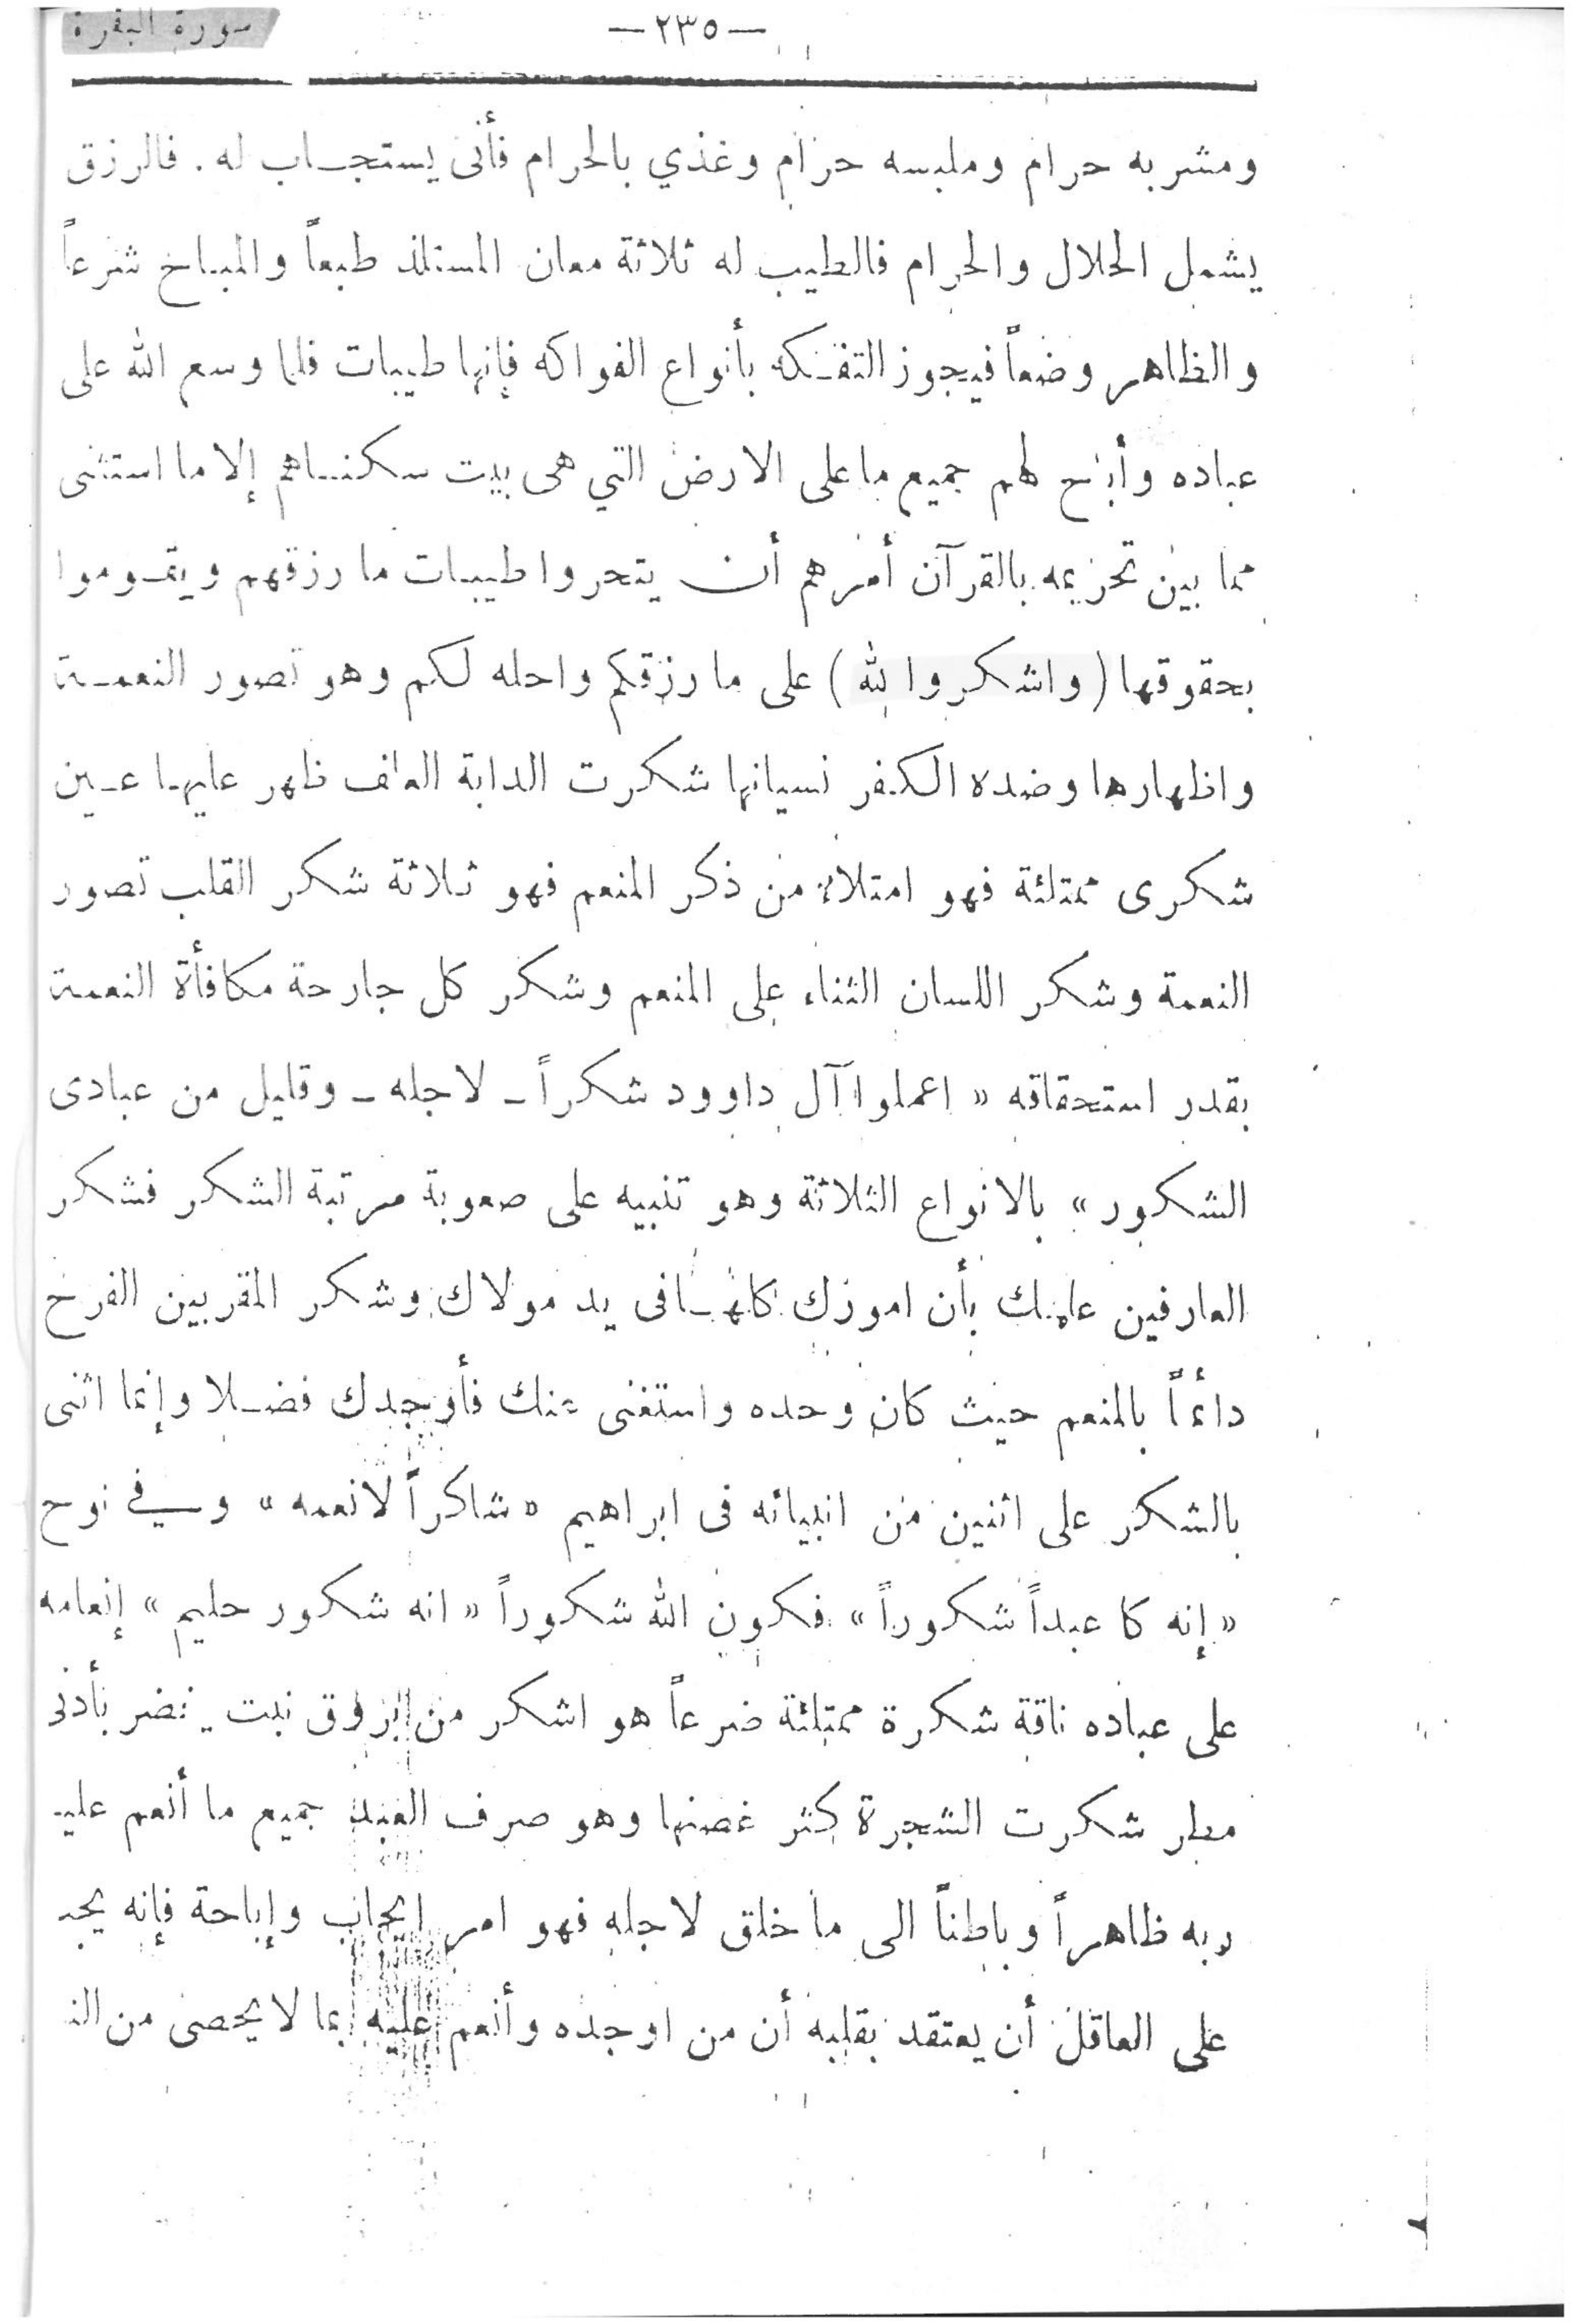 سورة البقرة
—٢٣٥—
ومشربه حرام وملبسه حرام وغذي بالحرام فأنى يستجاب له . فالرزق
يشمل الحلال والحرام فالطيب له ثلاثة معان المستلذ طبعاً والمباح شرعاً
والظاهر وضعاً فيجوز التفكه بأنواع الفواكه فإنها طيبات فلما وسع الله على
عباده وأبح لهم جميع ما على الارض التي هى بيت سكناهم إلا ما استثنى
مما بين تحريمه بالقرآن أمرهم أن يتحروا طيبات ما رزقهم ويقوموا
بحقوقها (واشكروا لله) على ما رزقكم واحله لكم وهو تصور النعمة
واظهارها وضده الكفر نسيانها شكرت الدابة العلف ظهر عليها عين
شكرى ممتلئة فهو امتلاء من ذكر المنعم فهو ثلاثة شكر القلب تصور
النعمة وشكر اللسان الثناء على المنعم وشكر كل جارحة مكافأة النعمة
بقدر استحقاقه « اعملوا آل داوود شكراً – لاجله – وقليل من عبادى
الشكور » بالانواع الثلاثة وهو تنبيه على صعوبة مرتبة الشكر فشكر
العارفين علمك بأن امورك كلها فى يد مولاك وشكر المقربين الفرح
دائماً بالمنعم حيث كان وحده واستغنى عنك فأوجدك فضلا وإنما اثنى
بالشكر على اثنين من انبيائه فى ابراهيم « شاكراً لانعمه » وفي نوح
« إنه كا عبداً شكوراً » فكون الله شكوراً « انه شكور حليم » إنعامه
على عباده ناقة شكرة ممتلئة ضرعاً هو اشكر من بروق نبت يخضر بأدنى
مطر شكرت الشجرة كثر غصنها وهو صرف العبد جميع ما أنعم عليـ
ربه ظاهراً وباطناً الى ما خلق لاجله فهو امر ايجاب وإباحة فإنه يجب
على العاقل أن يعتقد بقلبه أن من اوجده وأنعم عليه بما لا يحصى من